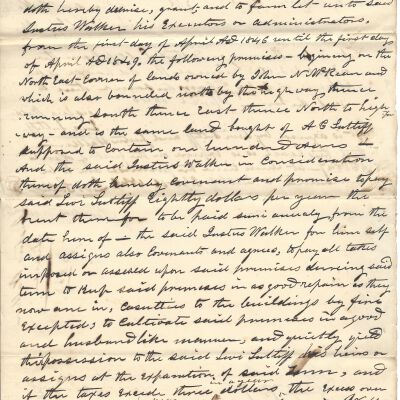 doth hereby demise, grant, and to farm let unto said
Justus Walker his Executors or administrators,
from the first day of April AD 1846 until the first day
of April AD 1849. the following premises - begining on the
North East Corner of lands owned by John N. McKean and
which is also bounded north by the high way, thence
running south thence East thence North to high
way - and is the same land bought of A G Sutliff
supposed to Contain one hundred Acres -
And the said Justus Walker in Consideration
thereof doth hereby Covenant and promise to pay
said Levi Sutliff Eightty dollars per year the
rent therefor to be paid semi anualy from the
date hereof - the said Justus Walker for him self
and assigns also Covenants and agrees, to pay all taxes
imposed or assessed upon said premises dureing said
term to Keep said premises in as good repair as they
now are in, Casulties to the buildings by fire
Excepted; to Cultivate said premises in a good
and husbandlike manner, and quietly yield
the possession to the said Levi Sutliff his heirs or
assigns at the Expiration of said term, and
if the taxes Excede three dollars in a year, the Excess over